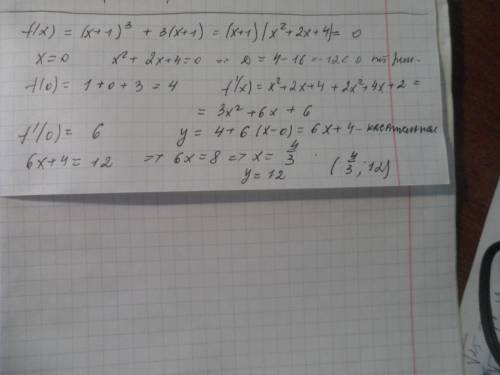 f(x) = (x+1)³ + 3(x+1) = (x+1)(x²+2x+4) = 0
x=0 x²+2x+4=0 ⇒ D = 4-16 = -12 < 0 нет реш.
f(0) = 1+0+3 = 4 f'(x) = x²+2x+4+2x²+4x+2 =
= 3x²+6x+6
f'(0) = 6 y = 4+6(x-0) = 6x+4 - касательная
6x+4 = 12 ⇒ 6x=8 ⇒ x = 4/3 .
y = 12 (4/3; 12)